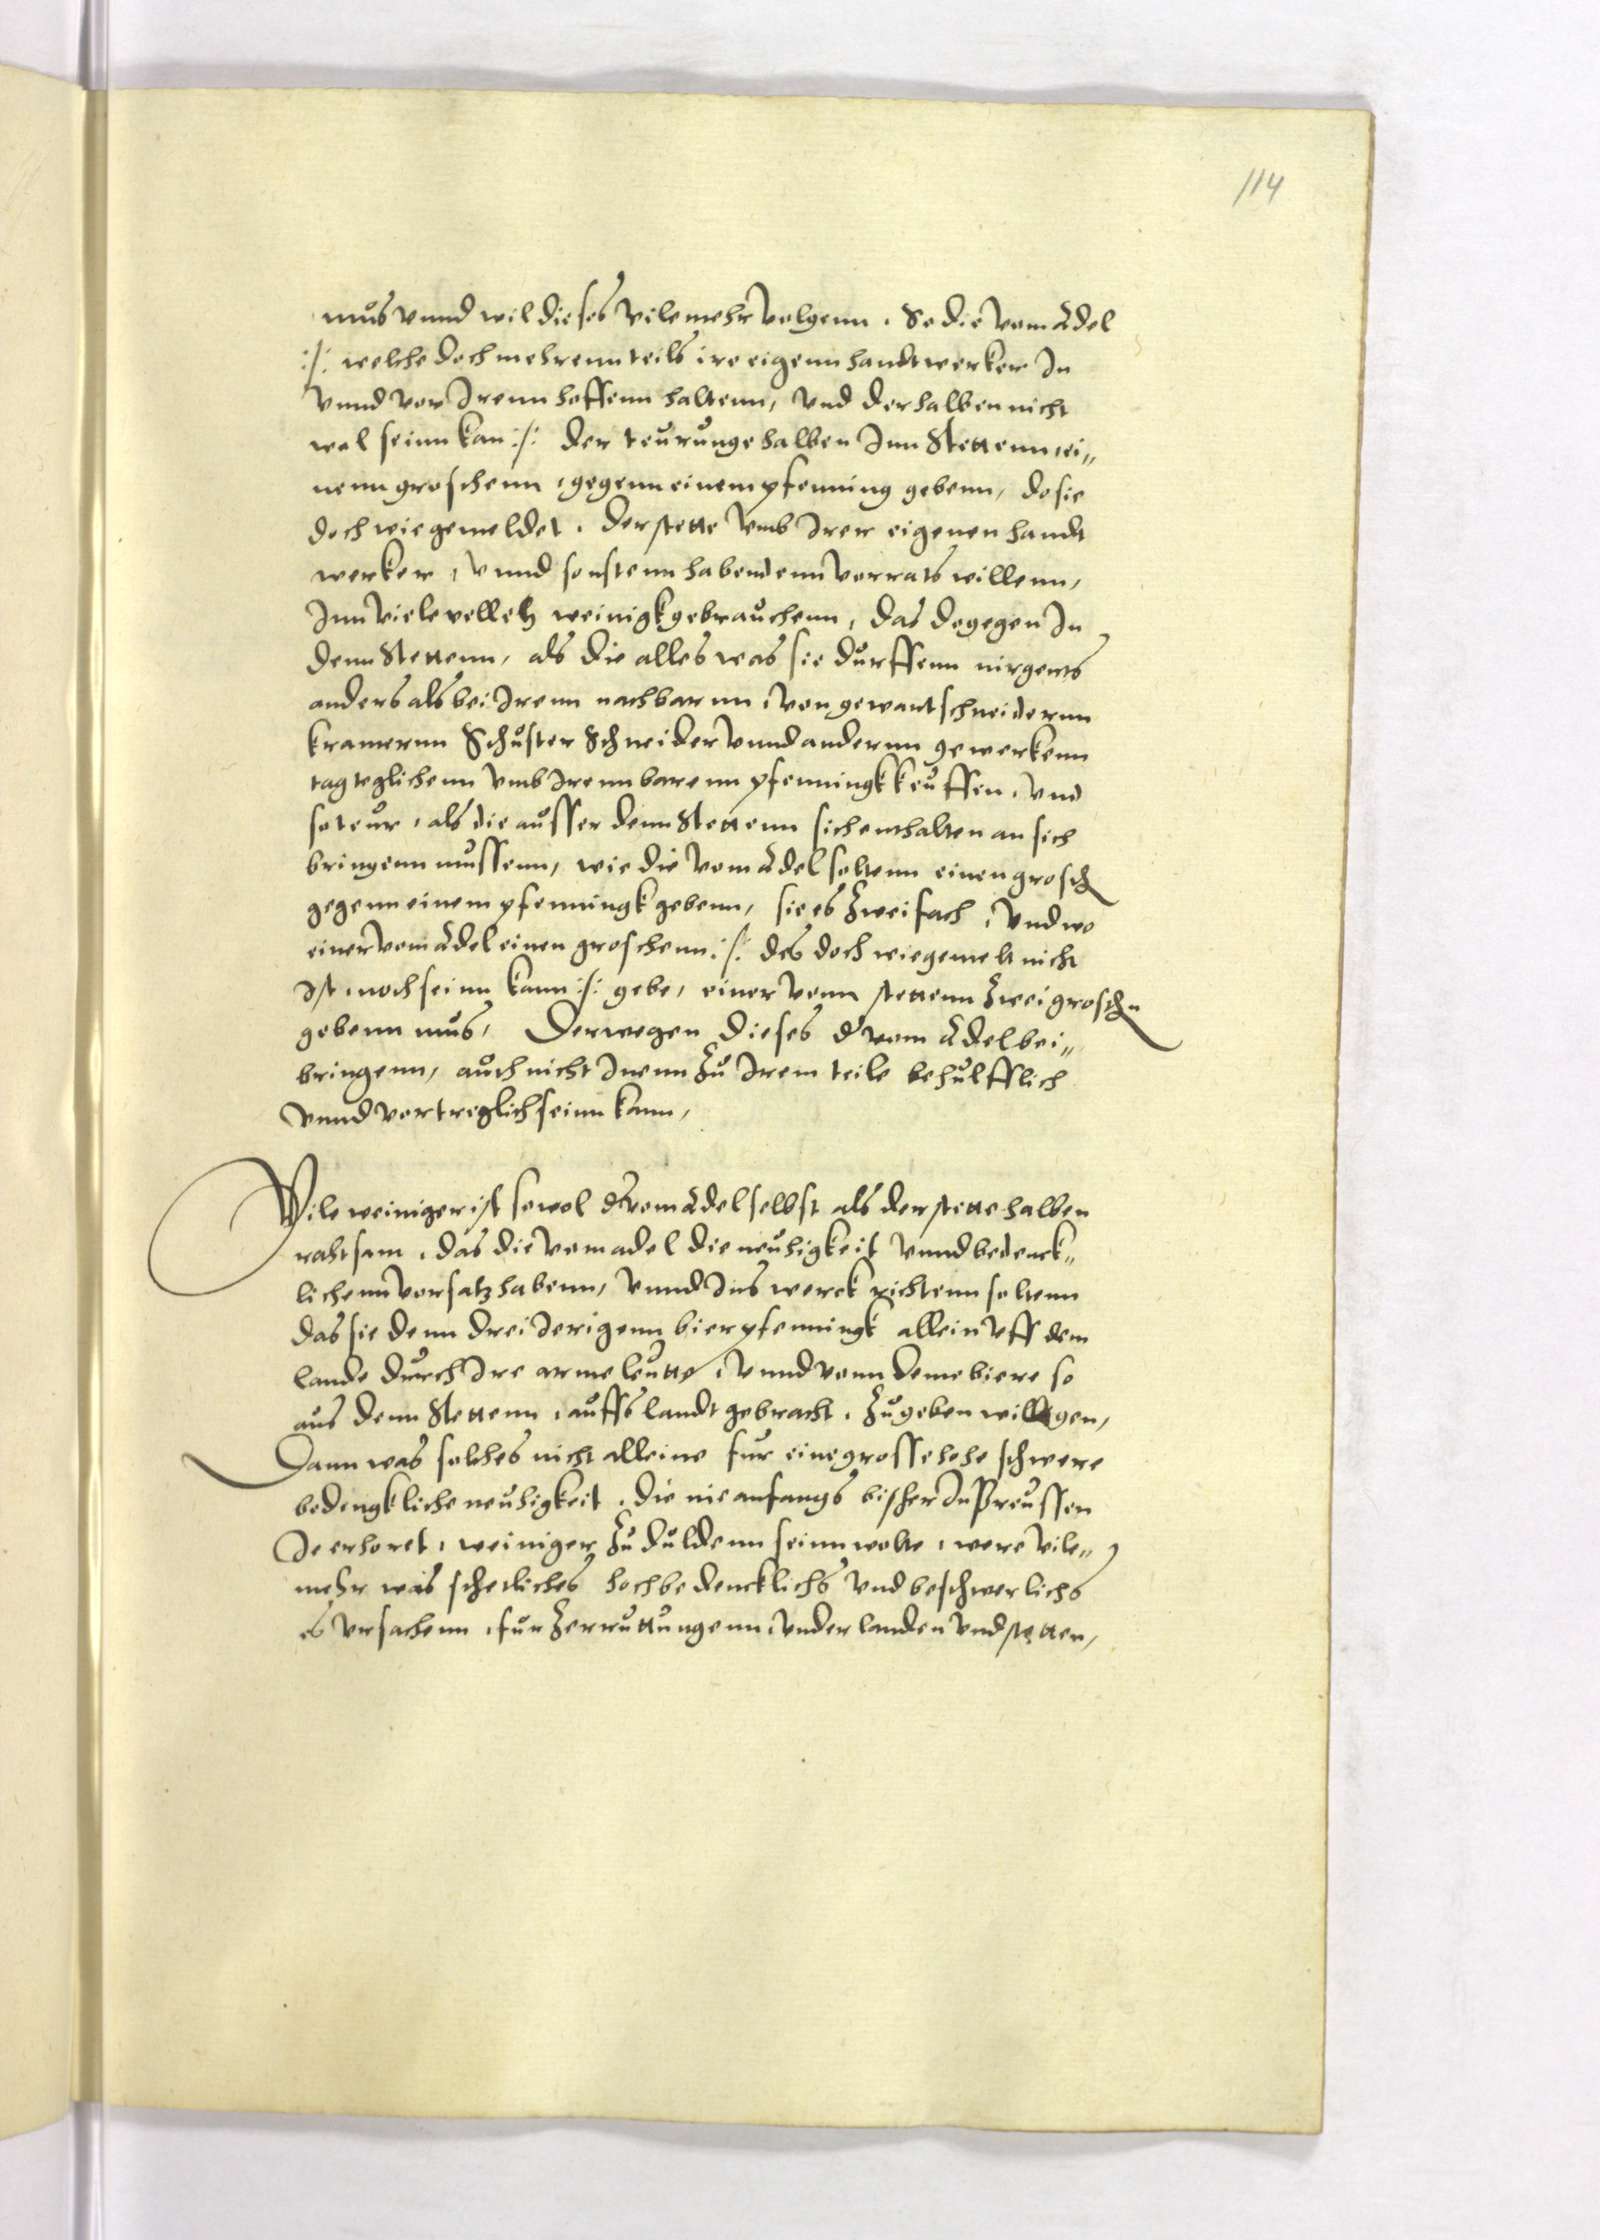 114
mus vnnd wil dieses vilemehr volgenn. So die vom Adel
:/: welche doch mehrennteils ire eigenn handtwerker In
vnnd vor Irenn hoffenn haltenn, vnd derhalben nicht
wol seinn kan :/: der teurunge halben Inn Stettenn, ei„
nenn groschenn, gegenn einem pfenning gebenn, do sie
doch wie gemeldet. der stette vmb Irer eigenen handt
werker, vnnd sonstenn habendenn vorrats willenn,
Inn viele weinigk gebrauchenn, das dogegen In
denn Stettenn, als die alles was sie durffenn nirgents
anders als bei Irenn nachbarnn, von gewantschneidernn
kramernn Schuster Schneider vnnd andernn gewerkenn
tagteglichenn vmb Irenn barenn pfenningk keuffen, vnd
so teur, als die ausser denn Stettenn sich enthalten an sich
bringenn mussenn, wie die vom Adel soltenn einen grosch
gegenn einem pfenningk gebenn, sie es zweifach, vnd wo
einer vom Adel einen groschenn :/: des doch wie gemelt nicht
Ist, noch seinn kann :/: gebe, einer vonn stettenn zwei groschn
gebenn mus, Derwegen dieses d vom Adel bei„
bringenn, auch nicht Inenn zu Irem teile behulfflich
vnnd vortreglich seinn kann,
Vile weiniger ist sowol d vom Adel selbst als der stette halben
rahtsam, das die vom adel die neuhigkeit vnnd bedenck„
lichenn vorsatz habenn, vnnd Ins werck richtenn soltenn
das sie denn dreiierigenn bierpfenningk allein vff dem
lande durch Ire arme leutte, vnnd vonn deme biere so
aus denn Stettenn, auffs landt gebracht. zugeben willigen,
Dann was solches nicht alleine fur eine grosse hohe schwere
bedengkliche neuhigkeit, die nie anfangs bisher In Preussen
Ie erhoret, weiniger zu duldenn seinn wolte, were vile„
mehr was schetliches hochbedencklichs vnd beschwerlichs
es vrsachenn, fur zerruttungenn, vnder landen vnd stetten,